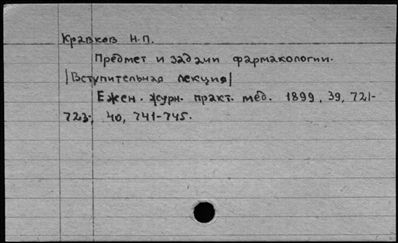 Кравков Н.П.
Предмет и задачи фармакологии.
|Вступительная лекция|
Ежен. журн. практ. мед. 1899, 39, 721-
723, 40, 741-745.